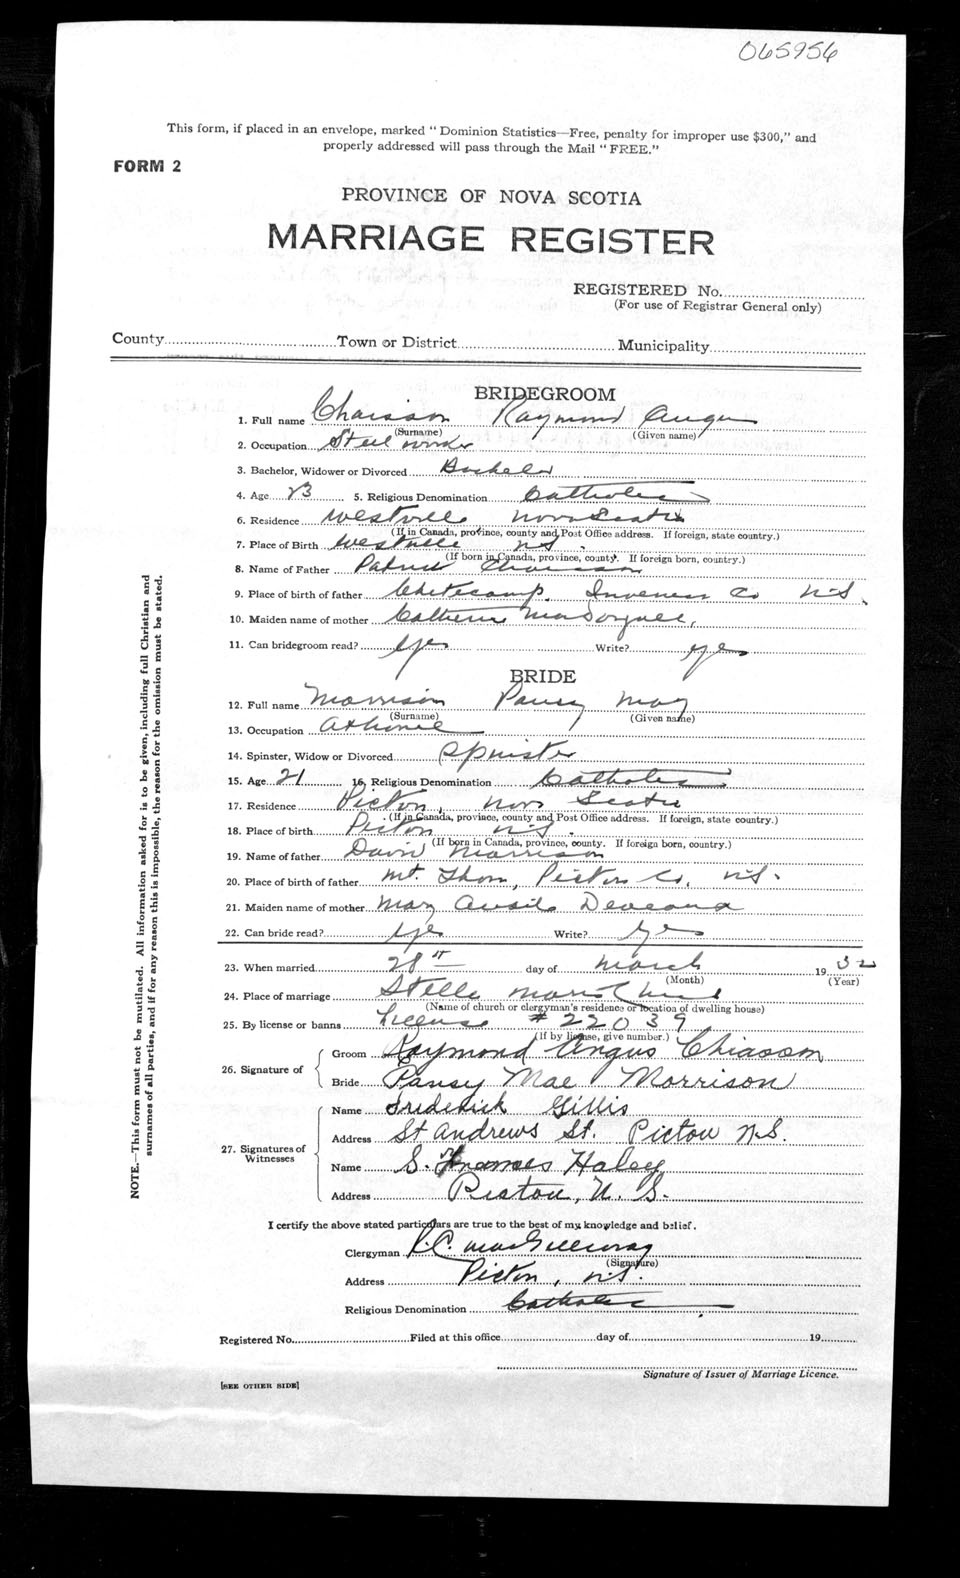 065956
This form, if placed in an envelope, marked "Dominion Statistics—Free, penalty for improper use $300," and
properly addressed will pass through the Mail "FREE."
FORM 2
PROVINCE OF NOVA SCOTIA
MARRIAGE REGISTER
REGISTERED No.
(For use of Registrar General only)
County Town or District Municipality
BRIDEGROOM
1. Full name Chaisson Raymond Angus
(Surname) (Given name)
2. Occupation Steel worker
3. Bachelor, Widower or Divorced Bachelor
4. Age 23 5. Religious Denomination Catholic
6. Residence Westville Nova Scotia
(If in Canada, province, county and Post Office address. If foreign, state country.)
7. Place of Birth Westville N.S.
(If born in Canada, province, county. If foreign born, country.)
8. Name of Father Patrick Chaisson
9. Place of birth of father Cheticamp. Inverness Co N.S.
10. Maiden name of mother Catherine
11. Can bridegroom read? yes Write? yes
BRIDE
12. Full name Morrison Pansy May
(Surname) (Given name)
13. Occupation At home
14. Spinster, Widow or Divorced Spinster
15. Age 21 16. Religious Denomination Catholic
17. Residence Pictou, Nova Scotia
(If in Canada, province, county and Post Office address. If foreign, state country.)
18. Place of birth Pictou N.S.
(If born in Canada, province, county. If foreign born, country.)
19. Name of father David Morrison
20. Place of birth of father Mt. Thom, Pictou Co, N.S.
21. Maiden name of mother Mary
22. Can bride read? yes Write? yes
23. When married 28th day of March 1932
(Month) (Year)
24. Place of marriage Stella Maris Church
(Name of church or clergyman's residence or location of dwelling house)
25. By license or banns License # 22039
(If by license, give number.)
26. Signature of Groom Raymond Angus Chiasson
Bride Pansy Mae Morrison
27. Signatures of Witnesses Name Frederick Gillis
Address St Andrews St. Pictou N.S.
Name S. Frances Haley
Address Pictou, N. S.
I certify the above stated particulars are true to the best of my knowledge and belief.
Clergyman R.C. MacGillivray
(Signature)
Address Pictou, N.S.
Religious Denomination Catholic
Registered No. Filed at this office day of 19
Signature of Issuer of Marriage Licence.
[SEE OTHER SIDE]
NOTE.—This form must not be mutilated. All information asked for is to be given, including full Christian and
surnames of all parties, and if for any reason this is impossible, the reason for the omission must be stated.